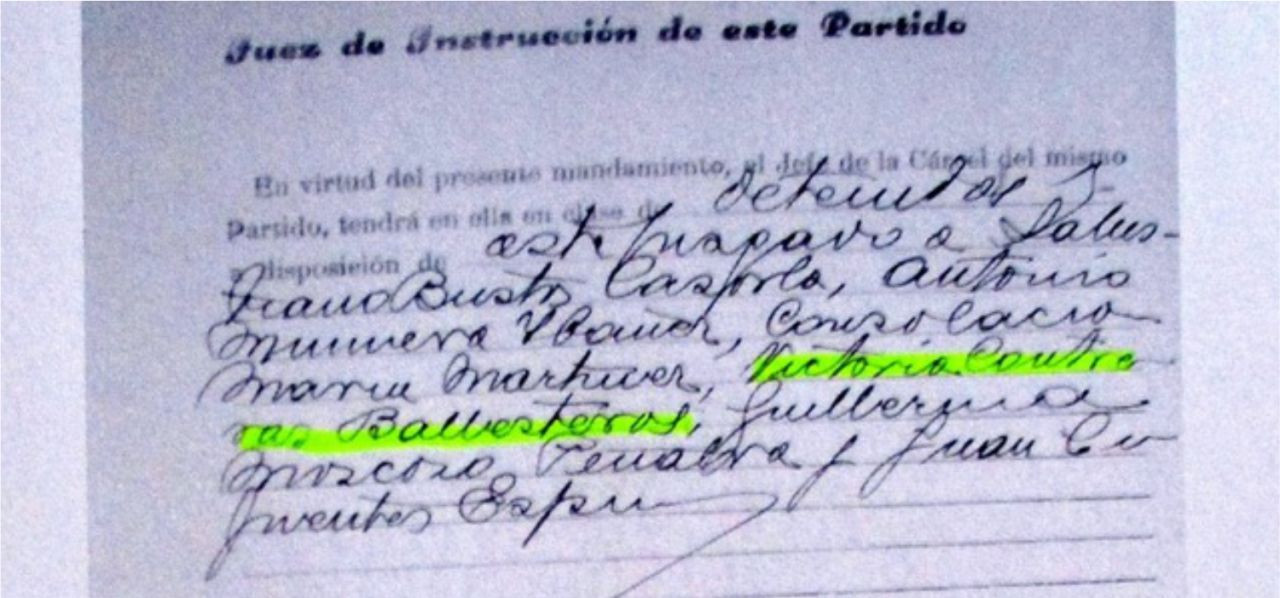 Juez de Instrucción de este Partido
En virtud del presente mandamiento, el Jefe de la Cárcel del mismo
Partido, tendrá en ella en clase de detenidos
a disposición de este Juzgado a Salus-
tiano Busto Casorla, Antonio
Munuera Ibañez, Consolacio
Marin Martinez, Victoria Contre
ras Ballesteros, Guillermina
Moscoso Penalva y Juan Ci
fuentes